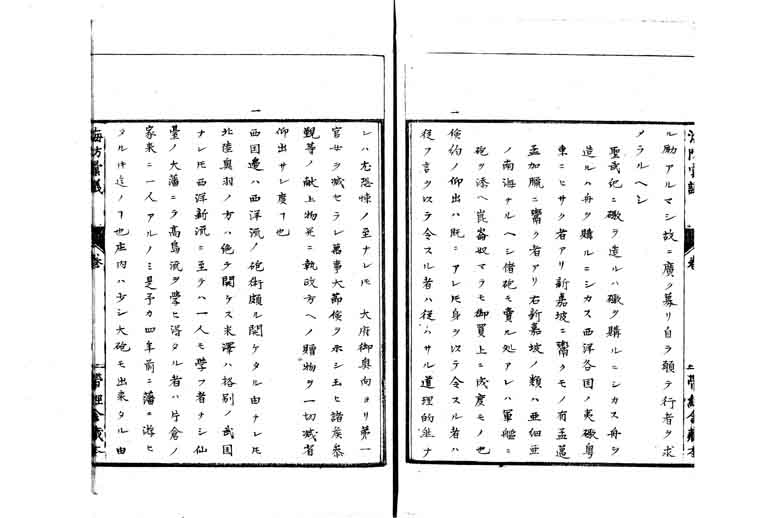 ル励アルマシ故ニ廣ク募リ自ラ願テ行者ヲ求
メラルヘシ
聖武紀ニ礟ヲ造ルハ礟ヲ購ルニシカス舟ヲ
造ルハ舟ヲ購ルニシカス西洋各国ノ夷礟粤
東ニヒサク者アリ新嘉坡ニ鬻クモノ有孟邁
孟加臘ニ鬻ク者アリ右新嘉坡ノ類ハ亜細亜
ノ南海ナルヘシ借砲モ賣ル処アレハ軍艦ニ
砲ヲ添ヘ崑崙奴マテモ御買上ニ成度モノ也
一 倹約ノ仰出ハ既ニアレ𪜈身ヲ以テ令スル者ハ
従フ言ヲ以テ令スル者ハ従ハサル道理的然ナ
レハ尤恐悚ノ至ナレ𪜈 大府御奥向ヨリ第一
官女ヲ减セラレ萬事大節倹ヲ示シ玉ヒ諸矦参
覲等ノ献上物并ニ執政方ヘノ贈物ヲ一切减省
仰出サレ度ヿ也
一 西国邉ハ西洋流ノ砲術頗ル開ケタル由ナレ𪜈
北陸奥羽ノ方ハ絶テ開ケス米澤ハ格別ノ武国
ナレ𪜈西洋新流ニ至テハ一人モ學フ者ナシ仙
臺ノ大藩ニテ高島流ヲ學ヒ得タル者ハ片倉ノ
家来ニ一人アルノミ是予カ四年前ニ藩ニ遊ヒ
タル時迄ノヿ也庄内ハ少シ大砲モ出来タル由
海防彙議
巻